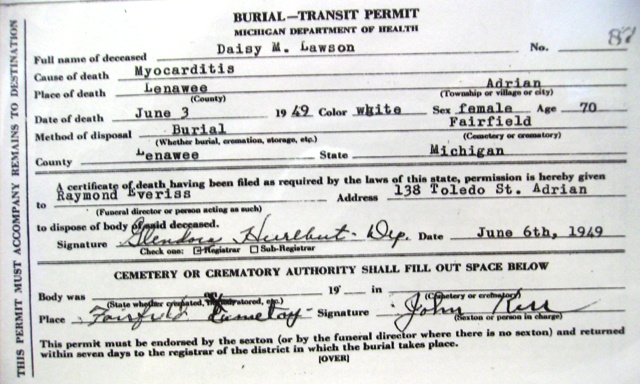 BURIAL—TRANSIT PERMIT
MICHIGAN DEPARTMENT OF HEALTH
87
Full name of deceased Daisy M. Lawson No.
Cause of death Myocarditis
Place of death Lenawee Adrian
(County) (Township or village or city)
Date of death June 3 1949 Color white Sex female Age 70
Method of disposal Burial Fairfield
(Whether burial, cremation, storage, etc.) (Cemetery or crematory)
County Lenawee State Michigan
A certificate of death having been filed as required by the laws of this state, permission is hereby given
to Raymond Everiss Address 138 Toledo St. Adrian
(Funeral director or person acting as such)
to dispose of body of said deceased.
Signature Glendora Hurlbut - Dep. Date June 6th, 1949
Check one: Registrar Sub-Registrar
CEMETERY OR CREMATORY AUTHORITY SHALL FILL OUT SPACE BELOW
Body was 19 in
(State whether cremated, buried, stored, etc.) (Cemetery or crematory)
Place Fairfield Cemetery Signature John
(Sexton or person in charge)
This permit must be endorsed by the sexton (or by the funeral director where there is no sexton) and returned
within seven days to the registrar of the district in which the burial takes place.
[OVER]
THIS PERMIT MUST ACCOMPANY REMAINS TO DESTINATION